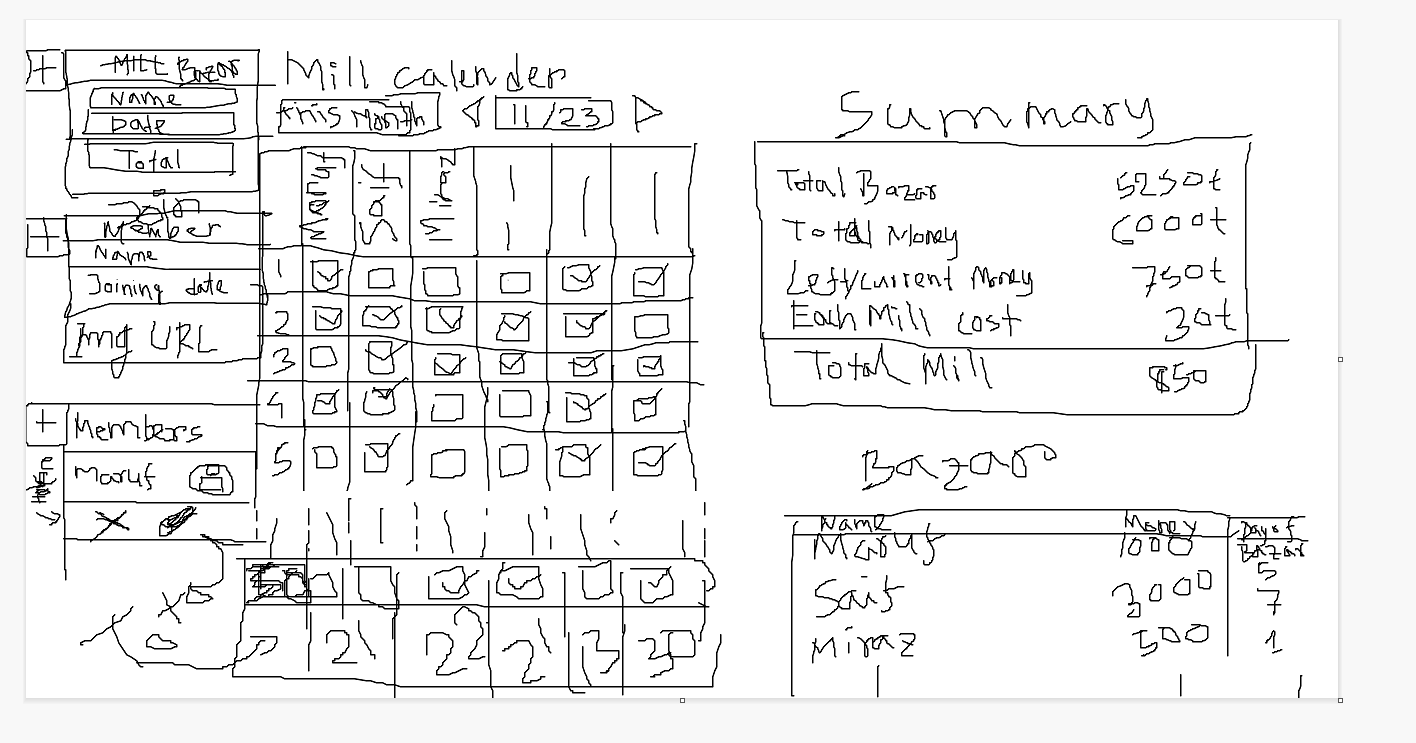 + MILL Bazar
Name
Date
Total
+ Member
Name
Joining date
Img URL
+ Members
Maruf
Mill calender
this Month 11/23
Maruf Saif Miraz
1
2
3
4
5
2 21 22 21 13 30
Summary
Total Bazar 5250t
Total Money 6000t
Left/current Money 750t
Each Mill cost 30t
Total Mill 850
Bazar
Name Money Day of Bazar
Maruf 1000 5
Saif 3000 7
Miraz 500 1